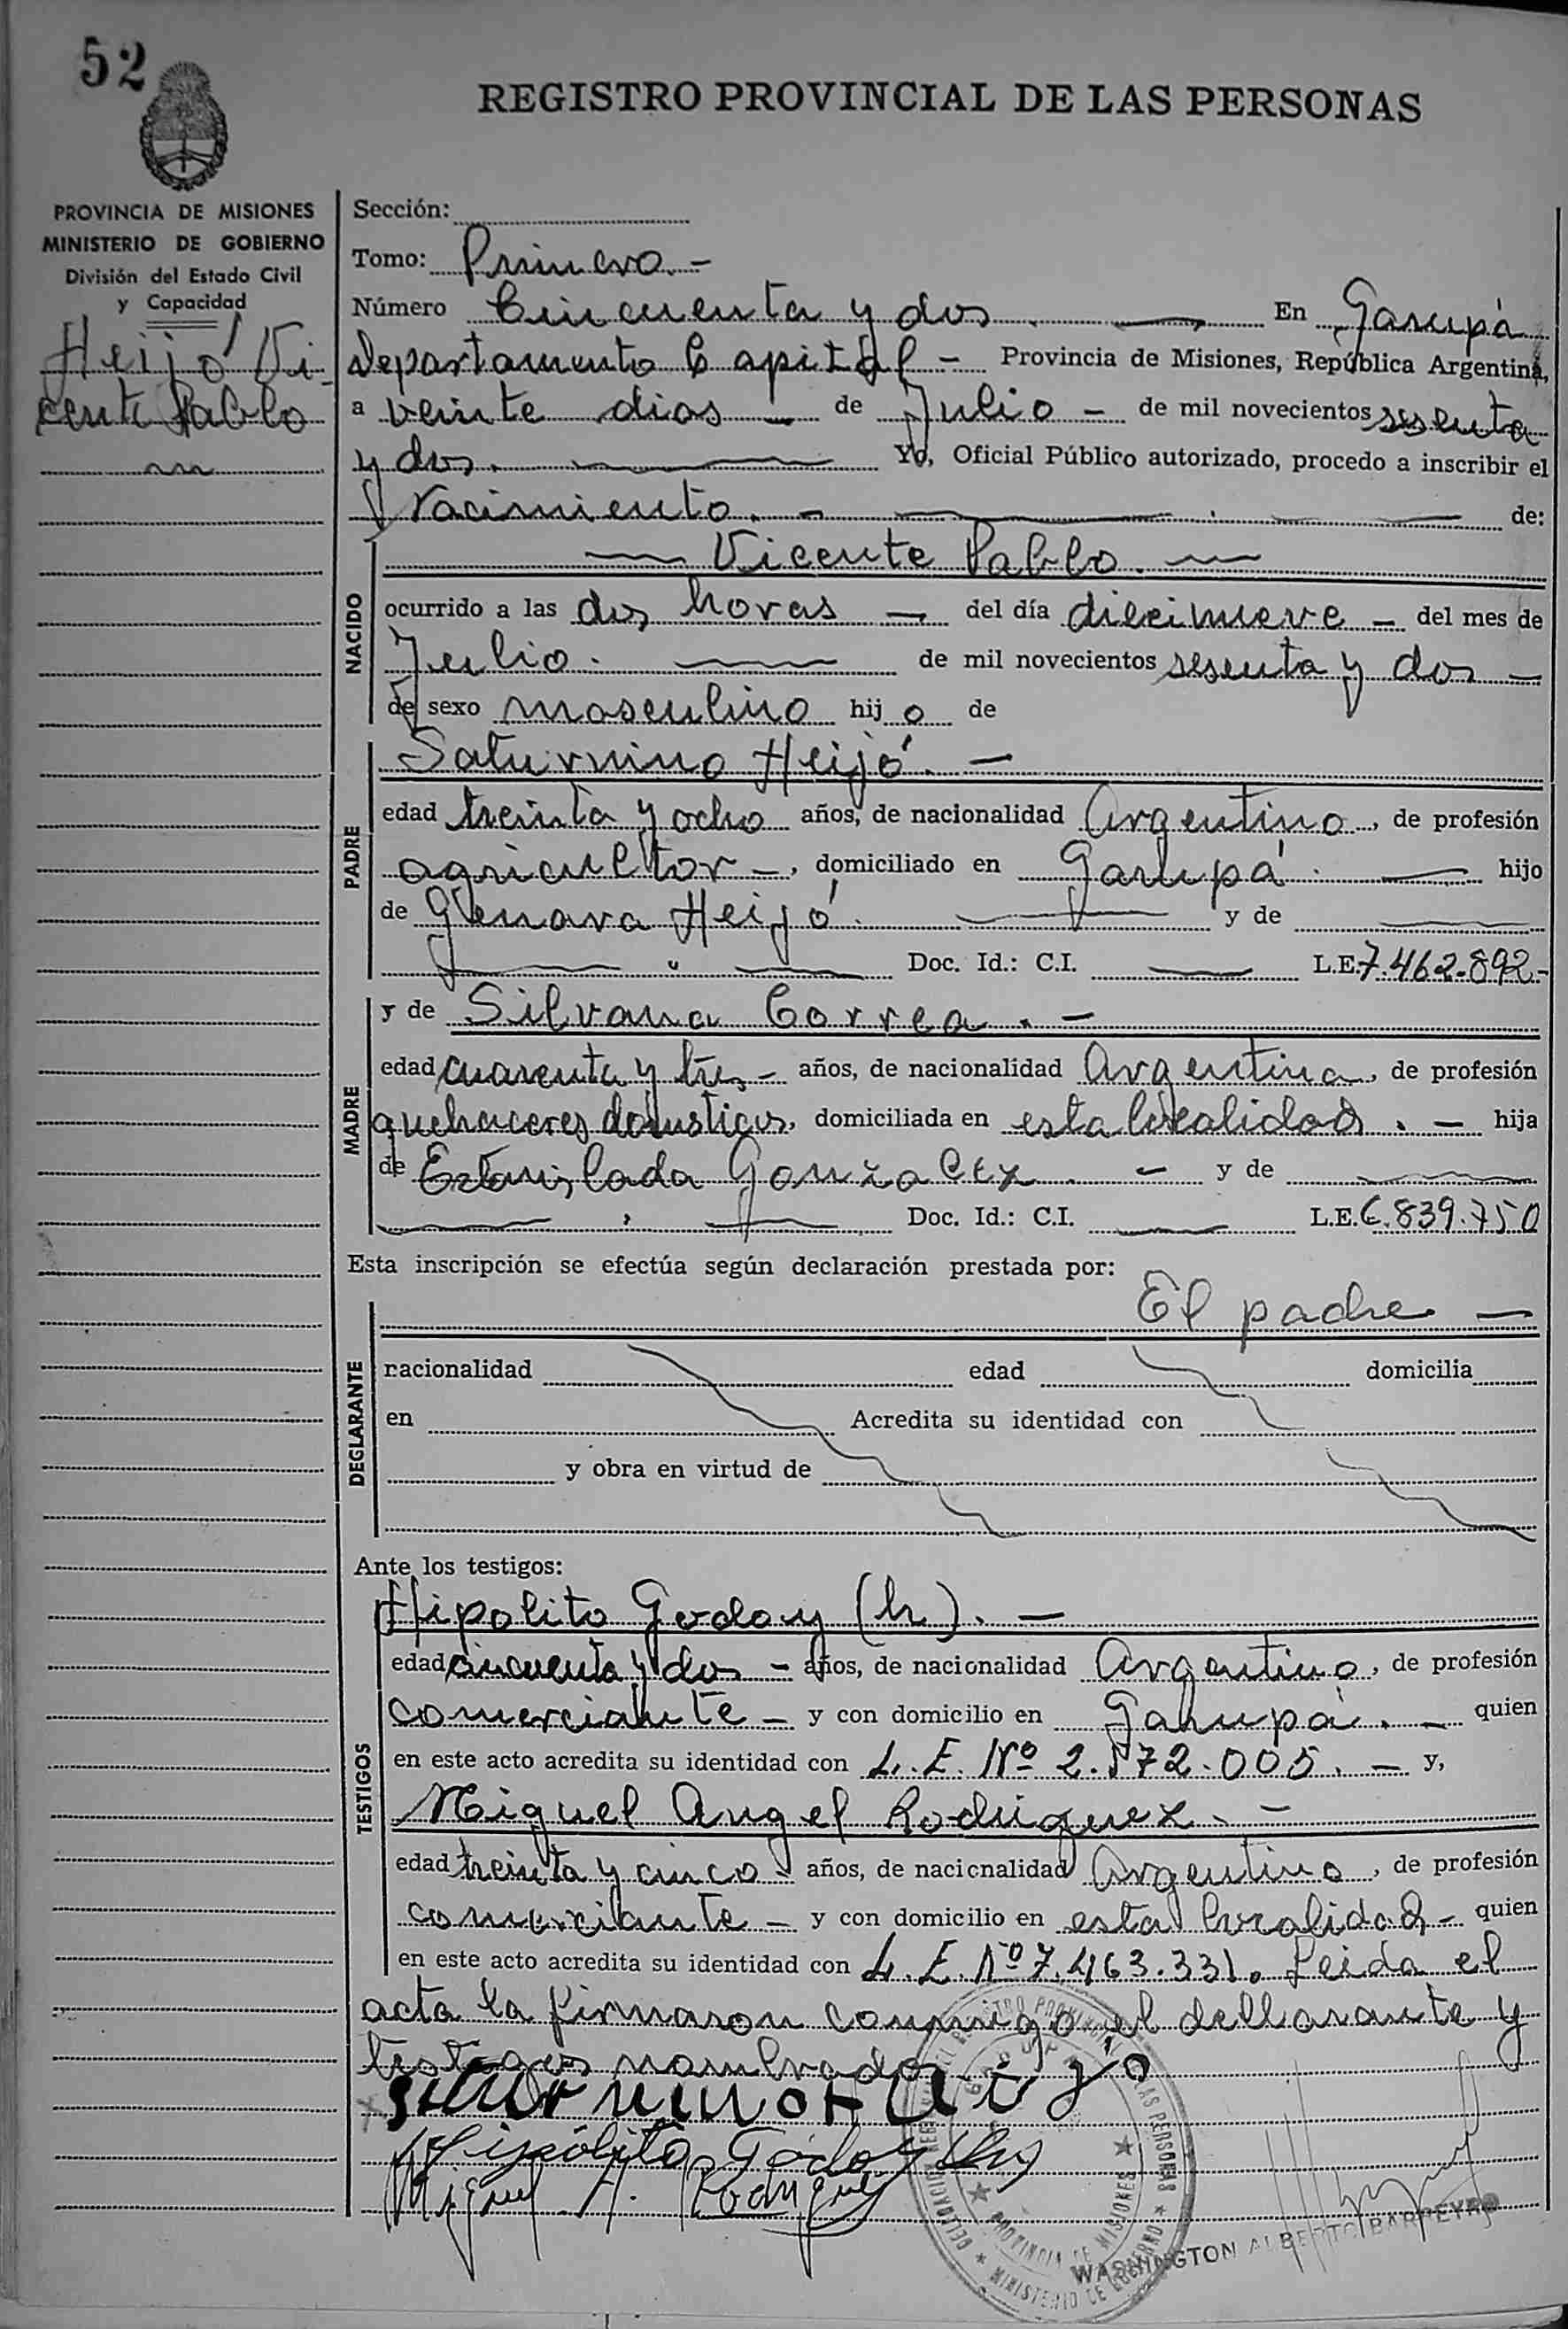 52
REGISTRO PROVINCIAL DE LAS PERSONAS
PROVINCIA DE MISIONES
MINISTERIO DE GOBIERNO
División del Estado Civil
y Capacidad
Heijó Vi-
cente Pablo
Sección:
Tomo: Primero.-
Número Cincuenta y dos. En Garupá
Departamento Capital - Provincia de Misiones, República Argentina,
a veinte dias - de Julio - de mil novecientos sesenta
y dos. Yo, Oficial Público autorizado, procedo a inscribir el
Nacimiento. - de:
NACIDO
Vicente Pablo.
ocurrido a las dos horas - del día diecinueve - del mes de
Julio. de mil novecientos sesenta y dos -
de sexo masculino hij o de
PADRE
Saturnino Heijó. -
edad treinta y ocho años, de nacionalidad Argentino, de profesión
agricultor -, domiciliado en Garupá. hijo
de Genara Heijó. y de
Doc. Id.: C.I. L.E. 7.462.892.-
MADRE
y de Silvana Correa. -
edad cuarenta y tres - años, de nacionalidad Argentina, de profesión
quehaceres domesticos, domiciliada en esta localidad. - hija
de Estanislada Gonzalez. - y de
Doc. Id.: C.I. L.E. 6.839.750
Esta inscripción se efectúa según declaración prestada por:
El padre -
DEGLARANTE
racionalidad edad domicilia
en Acredita su identidad con
y obra en virtud de
Ante los testigos:
TESTIGOS
Hipolito Godoy (h). -
edad cincuenta y dos - años, de nacionalidad Argentino, de profesión
comerciante - y con domicilio en Garupá. - quien
en este acto acredita su identidad con L.E. Nº 2.572.005. - y,
Miguel Angel Rodriguez. -
edad treinta y cinco - años, de nacionalidad Argentino, de profesión
comerciante - y con domicilio en esta localidad - quien
en este acto acredita su identidad con L.E. Nº 7.463.331. Leida el
acta la firmaron conmigo el dellarante y
testigos nombrados
Saturnino Heijo
Hipólito Godoy (h)
Miguel A. Rodriguez
PROVINCIA DE MISIONES
MINISTERIO DE GOBIERNO
WASHINGTON ALBERTO BARREYRO